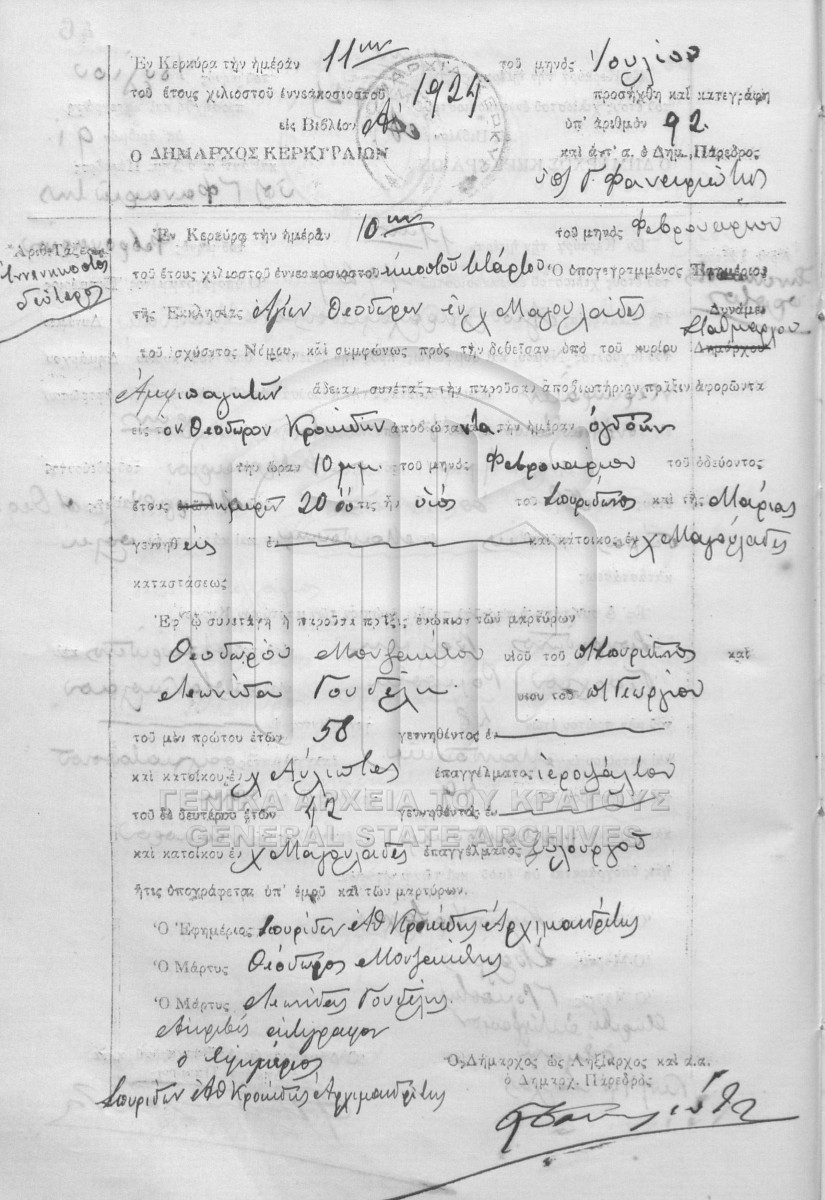 Ἐν Κερκύρᾳ τὴν ἡμέραν 11ην τοῦ μηνὸς Ἰουλίου
τοῦ ἔτους χιλιοστοῦ ἐννεακοσιοστοῦ 1924 προσήχθη καὶ κατεγράφη
εἰς Βιβλίον ὑπ' ἀριθμὸν 92
Ὁ ΔΗΜΑΡΧΟΣ ΚΕΡΚΥΡΑΙΩΝ καὶ ἀπ' α. ὁ Δημ. Πάρεδρος
Ἀριθ. Τάξεως
Ἐννενηκοστὸς
δεύτερος
Ἐν Κερκύρᾳ τὴν ἡμέραν 10ην τοῦ μηνὸς Φεβρουαρίου
τοῦ ἔτους χιλιοστοῦ ἐννεακοσιοστοῦ Ὁ ὑπογεγραμμένος Ἐφημέριος
τῆς Ἐκκλησίας Ἁγίων Θεοδώρων ἐν χ Μαγουλάδες Δυνάμει
τοῦ ἰσχύοντος Νόμου, καὶ συμφώνως πρὸς τὴν δοθεῖσαν ὑπὸ τοῦ κυρίου Δημάρχου Σταθμάρχου
Ἀμφιπαγιτῶν ἄδειαν συνέταξα τὴν παροῦσαν ἀποβιωτήριον πρᾶξιν ἀφορῶντα
εἰς τὸν Θεόδωρον Κροκίδην ἀποβιώσαντα τὴν ἡμέραν ὀγδόην
τὴν ὥραν 10 μμ. τοῦ μηνὸς Φεβρουαρίου τοῦ ὁδεύοντος
ἔτους ἡμερῶν 20 ὅστις ἦν υἱὸς τοῦ Σπυρίδωνος καὶ τῆς Μαρίας
γεννηθεὶς ἐν καὶ κάτοικος ἐν χ Μαγουλάδες
καταστάσεως
Ἐφ' ᾧ συνετάγη ἡ παροῦσα πρᾶξις ἐνώπιον τῶν μαρτύρων
Θεοδώρου Μουζακίτου υἱοῦ τοῦ π. Σπυρίδωνος καὶ
Λεωνίδα Γουδέλη υἱοῦ τοῦ π. Γεωργίου
τοῦ μὲν πρώτου ἐτῶν 58 γεννηθέντος ἐν
καὶ κατοίκου ἐν χ Αὐλιῶτες ἐπαγγέλματος ἱεροψάλτου
ΓΕΝΙΚΑ ΑΡΧΕΙΑ ΤΟΥ ΚΡΑΤΟΥΣ
τοῦ δὲ δευτέρου ἐτῶν 42 γεννηθέντος ἐν
GENERAL STATE ARCHIVES
καὶ κατοίκου ἐν χ Μαγουλάδες ἐπαγγέλματος ξυλουργοῦ
ἥτις ὑπογράφεται ὑπ' ἐμοῦ καὶ τῶν μαρτύρων.
Ὁ Ἐφημέριος Σπυρίδων Ἀθ Κροκίδης Ἀρχιμανδρίτης
Ὁ Μάρτυς Θεόδωρος Μουζακίτης
Ὁ Μάρτυς Λεωνίδας Γουδέλης
Ἀκριβὲς ἀντίγραφον
ὁ Ἐφημέριος
Σπυρίδων Ἀθ Κροκίδης Ἀρχιμανδρίτης
Ὁ Δήμαρχος ὡς Ληξίαρχος καὶ α.α.
ὁ Δημαρχ. Πάρεδρος